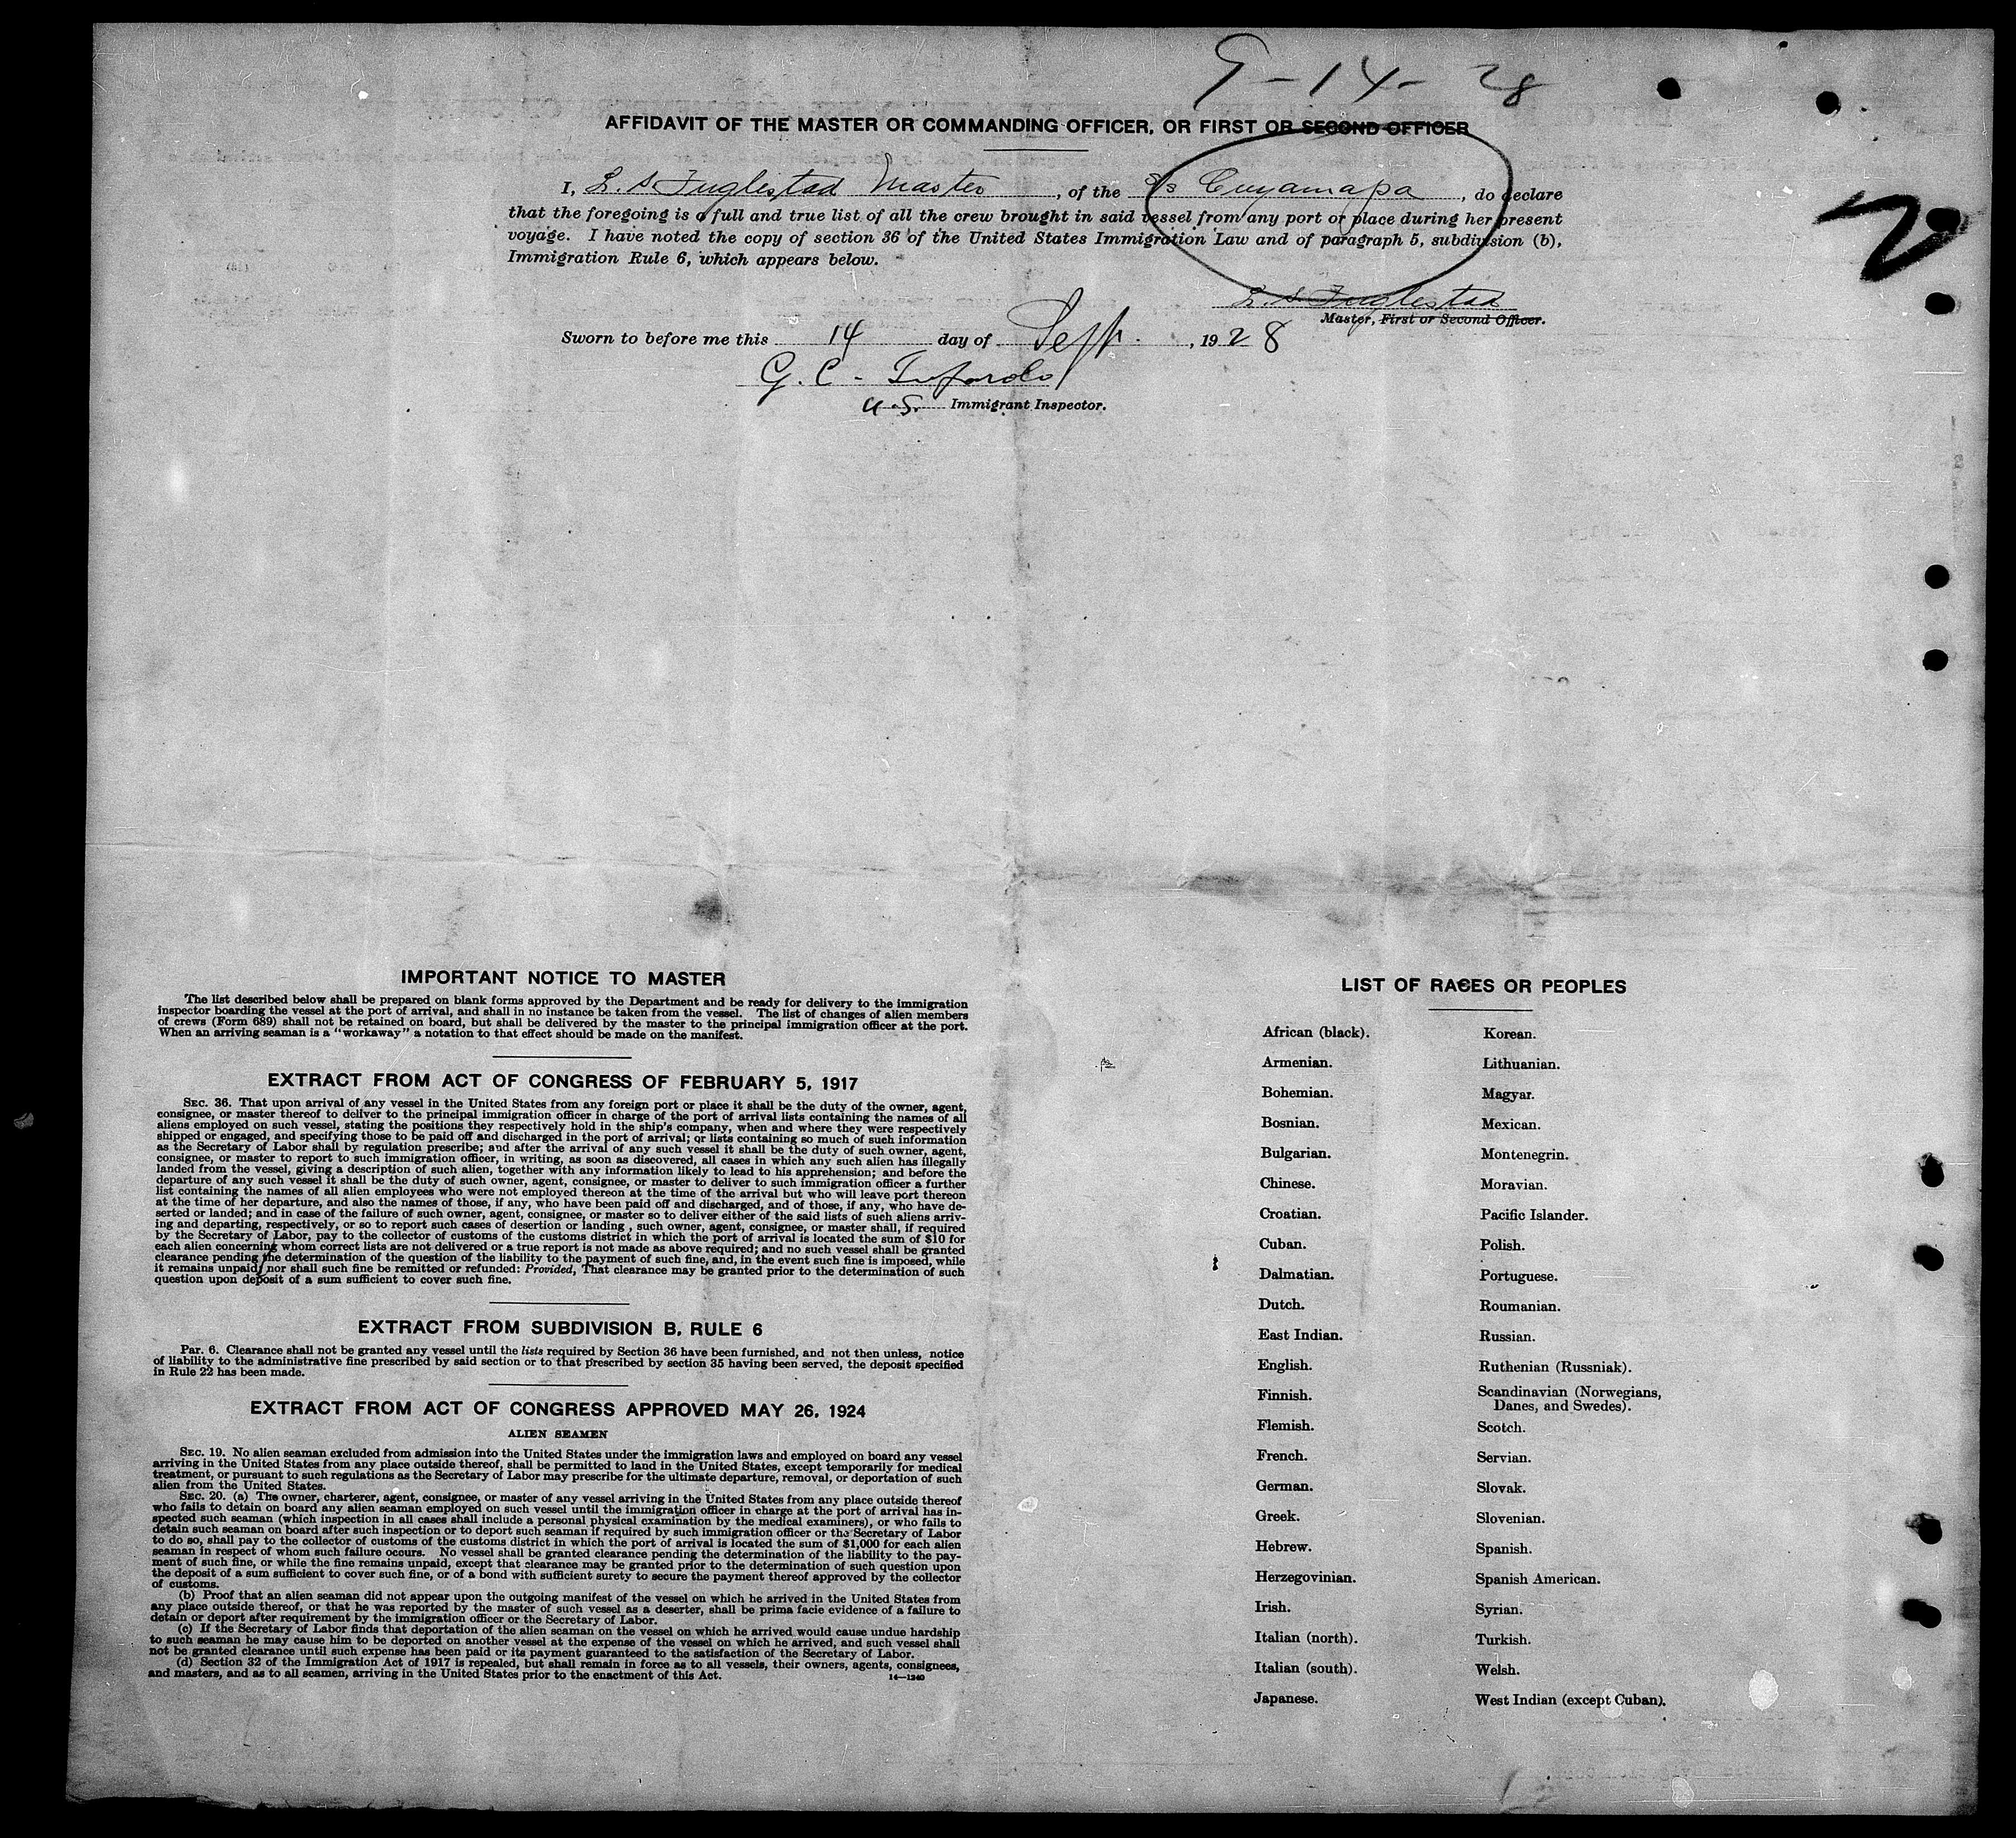 9-14-28
AFFIDAVIT OF THE MASTER OR COMMANDING OFFICER, OR FIRST OR SECOND OFFICER
I, L. S. Fuglestad Master, of the S/s Cuyamapa, do declare
that the foregoing is a full and true list of all the crew brought in said vessel from any port or place during her present
voyage. I have noted the copy of section 36 of the United States Immigration Law and of paragraph 5, subdivision (b),
Immigration Rule 6, which appears below.
2
L. S. Fuglestad
Master, First or Second Officer.
Sworn to before me this 14 day of Sept., 1928
G. C.
U.S. Immigrant Inspector.
IMPORTANT NOTICE TO MASTER
The list described below shall be prepared on blank forms approved by the Department and be ready for delivery to the immigration
inspector boarding the vessel at the port of arrival, and shall in no instance be taken from the vessel. The list of changes of alien members
of crews (Form 689) shall not be retained on board, but shall be delivered by the master to the principal immigration officer at the port.
When an arriving seaman is a "workaway" a notation to that effect should be made on the manifest.
EXTRACT FROM ACT OF CONGRESS OF FEBRUARY 5, 1917
SEC. 36. That upon arrival of any vessel in the United States from any foreign port or place it shall be the duty of the owner, agent,
consignee, or master thereof to deliver to the principal immigration officer in charge of the port of arrival lists containing the names of all
aliens employed on such vessel, stating the positions they respectively hold in the ship's company, when and where they were respectively
shipped or engaged, and specifying those to be paid off and discharged in the port of arrival; or lists containing so much of such information
as the Secretary of Labor shall by regulation prescribe; and after the arrival of any such vessel it shall be the duty of such owner, agent,
consignee, or master to report to such immigration officer, in writing, as soon as discovered, all cases in which any such alien has illegally
landed from the vessel, giving a description of such alien, together with any information likely to lead to his apprehension; and before the
departure of any such vessel it shall be the duty of such owner, agent, consignee, or master to deliver to such immigration officer a further
list containing the names of all alien employees who were not employed thereon at the time of the arrival but who will leave port thereon
at the time of her departure, and also the names of those, if any, who have been paid off and discharged, and of those, if any, who have de-
serted or landed; and in case of the failure of such owner, agent, consignee, or master so to deliver either of the said lists of such aliens arriv-
ing and departing, respectively, or so to report such cases of desertion or landing, such owner, agent, consignee, or master shall, if required
by the Secretary of Labor, pay to the collector of customs of the customs district in which the port of arrival is located the sum of $10 for
each alien concerning whom correct lists are not delivered or a true report is not made as above required; and no such vessel shall be granted
clearance pending the determination of the question of the liability to the payment of such fine, and, in the event such fine is imposed, while
it remains unpaid, nor shall such fine be remitted or refunded: Provided, That clearance may be granted prior to the determination of such
question upon deposit of a sum sufficient to cover such fine.
EXTRACT FROM SUBDIVISION B, RULE 6
Par. 6. Clearance shall not be granted any vessel until the lists required by Section 36 have been furnished, and not then unless, notice
of liability to the administrative fine prescribed by said section or to that prescribed by section 35 having been served, the deposit specified
in Rule 22 has been made.
EXTRACT FROM ACT OF CONGRESS APPROVED MAY 26, 1924
ALIEN SEAMEN
SEC. 19. No alien seaman excluded from admission into the United States under the immigration laws and employed on board any vessel
arriving in the United States from any place outside thereof, shall be permitted to land in the United States, except temporarily for medical
treatment, or pursuant to such regulations as the Secretary of Labor may prescribe for the ultimate departure, removal, or deportation of such
alien from the United States.
SEC. 20. (a) The owner, charterer, agent, consignee, or master of any vessel arriving in the United States from any place outside thereof
who fails to detain on board any alien seaman employed on such vessel until the immigration officer in charge at the port of arrival has in-
spected such seaman (which inspection in all cases shall include a personal physical examination by the medical examiners), or who fails to
detain such seaman on board after such inspection or to deport such seaman if required by such immigration officer or the Secretary of Labor
to do so, shall pay to the collector of customs of the customs district in which the port of arrival is located the sum of $1,000 for each alien
seaman in respect of whom such failure occurs. No vessel shall be granted clearance pending the determination of the liability to the pay-
ment of such fine, or while the fine remains unpaid, except that clearance may be granted prior to the determination of such question upon
the deposit of a sum sufficient to cover such fine, or of a bond with sufficient surety to secure the payment thereof approved by the collector
of customs.
(b) Proof that an alien seaman did not appear upon the outgoing manifest of the vessel on which he arrived in the United States from
any place outside thereof, or that he was reported by the master of such vessel as a deserter, shall be prima facie evidence of a failure to
detain or deport after requirement by the immigration officer or the Secretary of Labor.
(c) If the Secretary of Labor finds that deportation of the alien seaman on the vessel on which he arrived would cause undue hardship
to such seaman he may cause him to be deported on another vessel at the expense of the vessel on which he arrived, and such vessel shall
not be granted clearance until such expense has been paid or its payment guaranteed to the satisfaction of the Secretary of Labor.
(d) Section 32 of the Immigration Act of 1917 is repealed, but shall remain in force as to all vessels, their owners, agents, consignees,
and masters, and as to all seamen, arriving in the United States prior to the enactment of this Act. 14—1240
LIST OF RACES OR PEOPLES
African (black). Korean.
Armenian. Lithuanian.
Bohemian. Magyar.
Bosnian. Mexican.
Bulgarian. Montenegrin.
Chinese. Moravian.
Croatian. Pacific Islander.
Cuban. Polish.
Dalmatian. Portuguese.
Dutch. Roumanian.
East Indian. Russian.
English. Ruthenian (Russniak).
Finnish. Scandinavian (Norwegians,
Danes, and Swedes).
Flemish. Scotch.
French. Servian.
German. Slovak.
Greek. Slovenian.
Hebrew. Spanish.
Herzegovinian. Spanish American.
Irish. Syrian.
Italian (north). Turkish.
Italian (south). Welsh.
Japanese. West Indian (except Cuban).